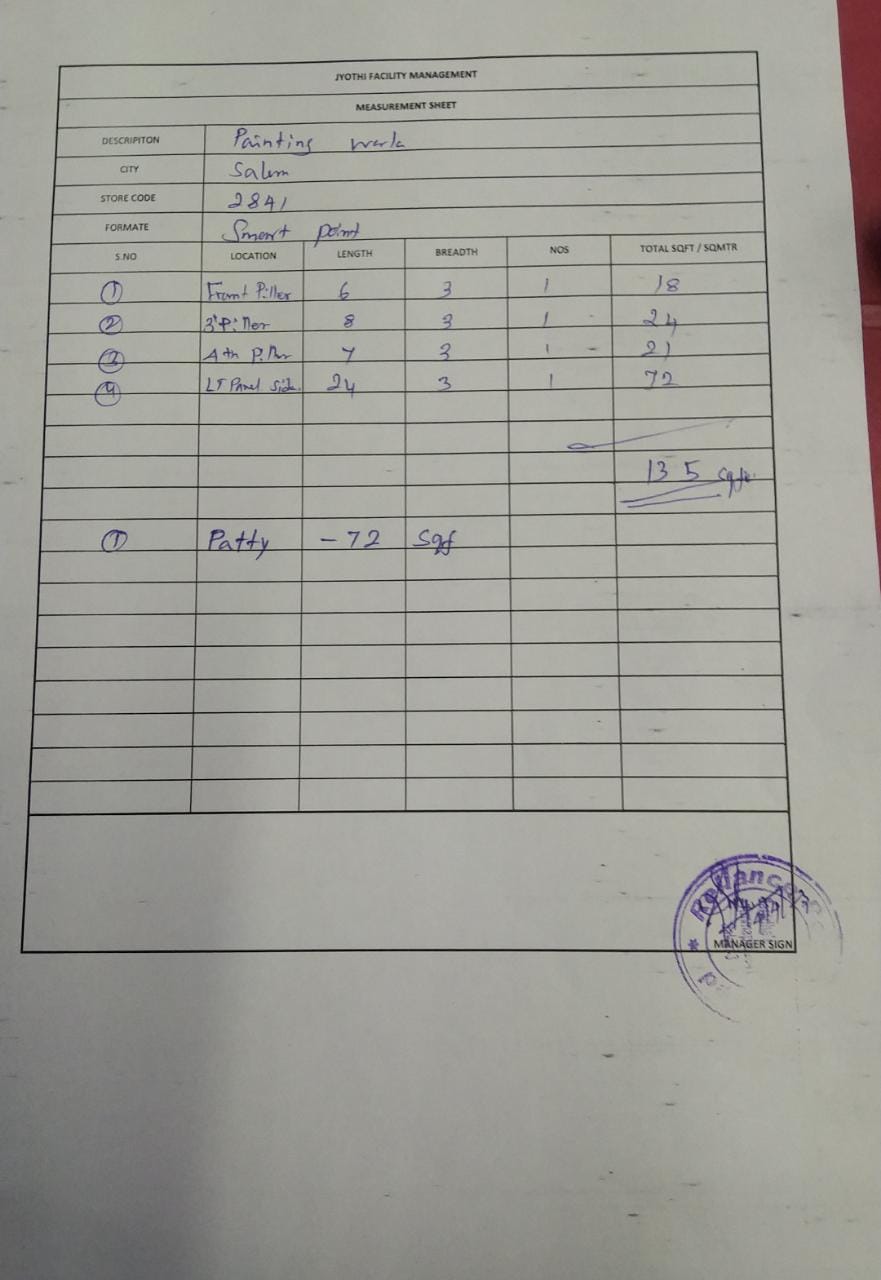 JYOTHI FACILITY MANAGEMENT
MEASUREMENT SHEET
DESCRIPITON Painting work
CITY Salem
STORE CODE 2841
FORMATE Smart point
S.NO LOCATION LENGTH BREADTH NOS TOTAL SQFT / SQMTR
① Front Piller 6 3 1 18
② 3rd Piller 8 3 1 24
③ 4th Piller 7 3 1 - 21
④ LT Panel side. 24 3 1 72
135 sqft
① Patty - 72 Sqf
Reliance
MANAGER SIGN